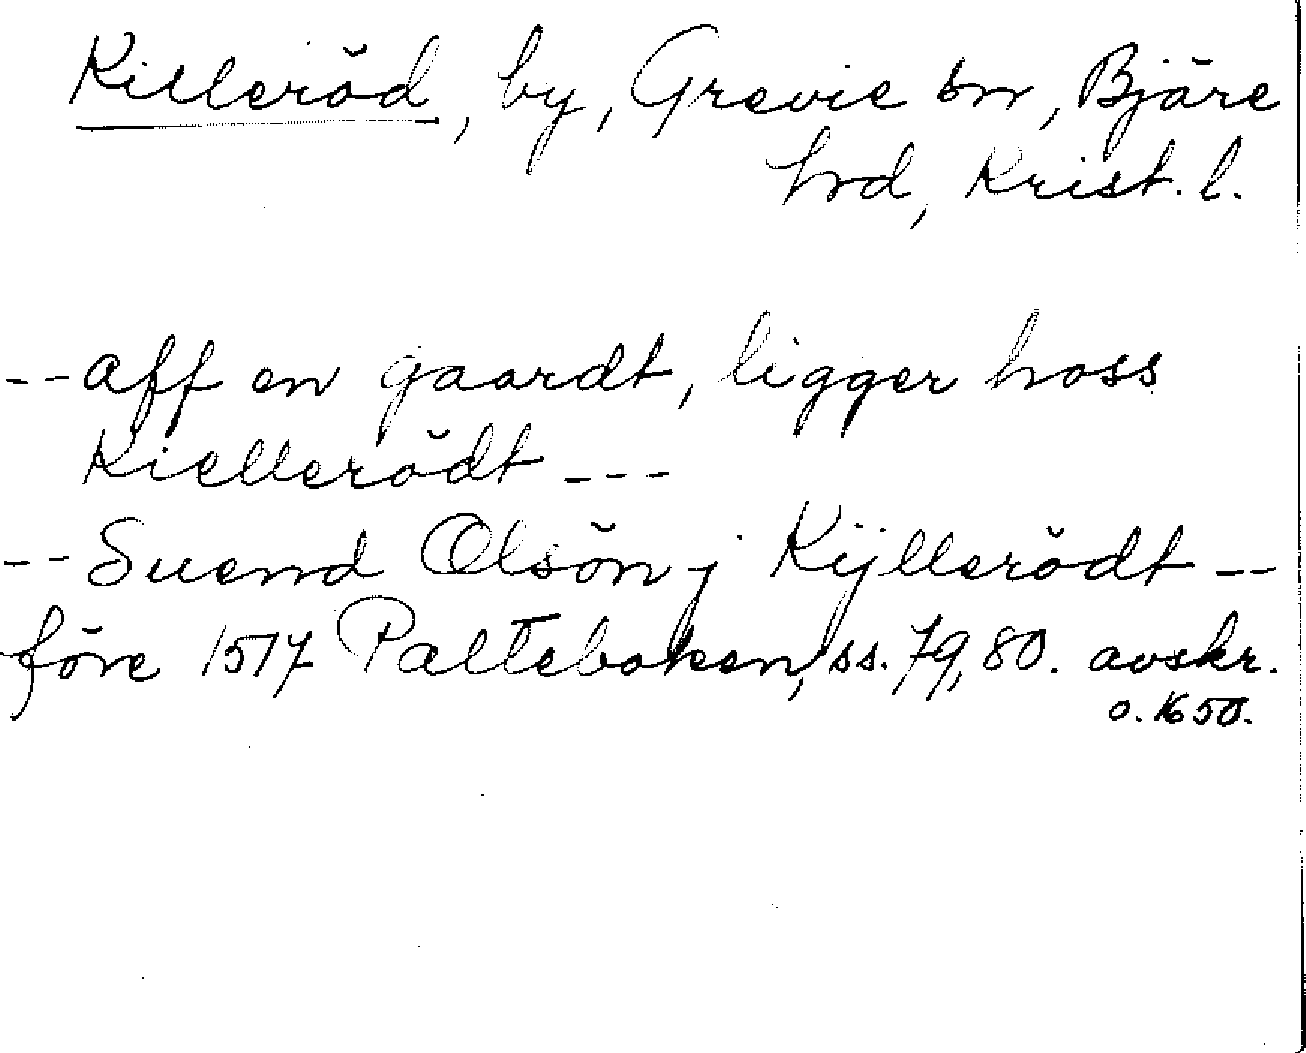 Killeröd, by, Grevie sn, Bjäre
hrd, Krist. l.
-- aff en gaardt, ligger hoss
Kiellerödt ---
-- Suend Olsön j Kÿllerödt --
före 1517 Palteboken, ss. 79, 80. avskr.
o. 1650.